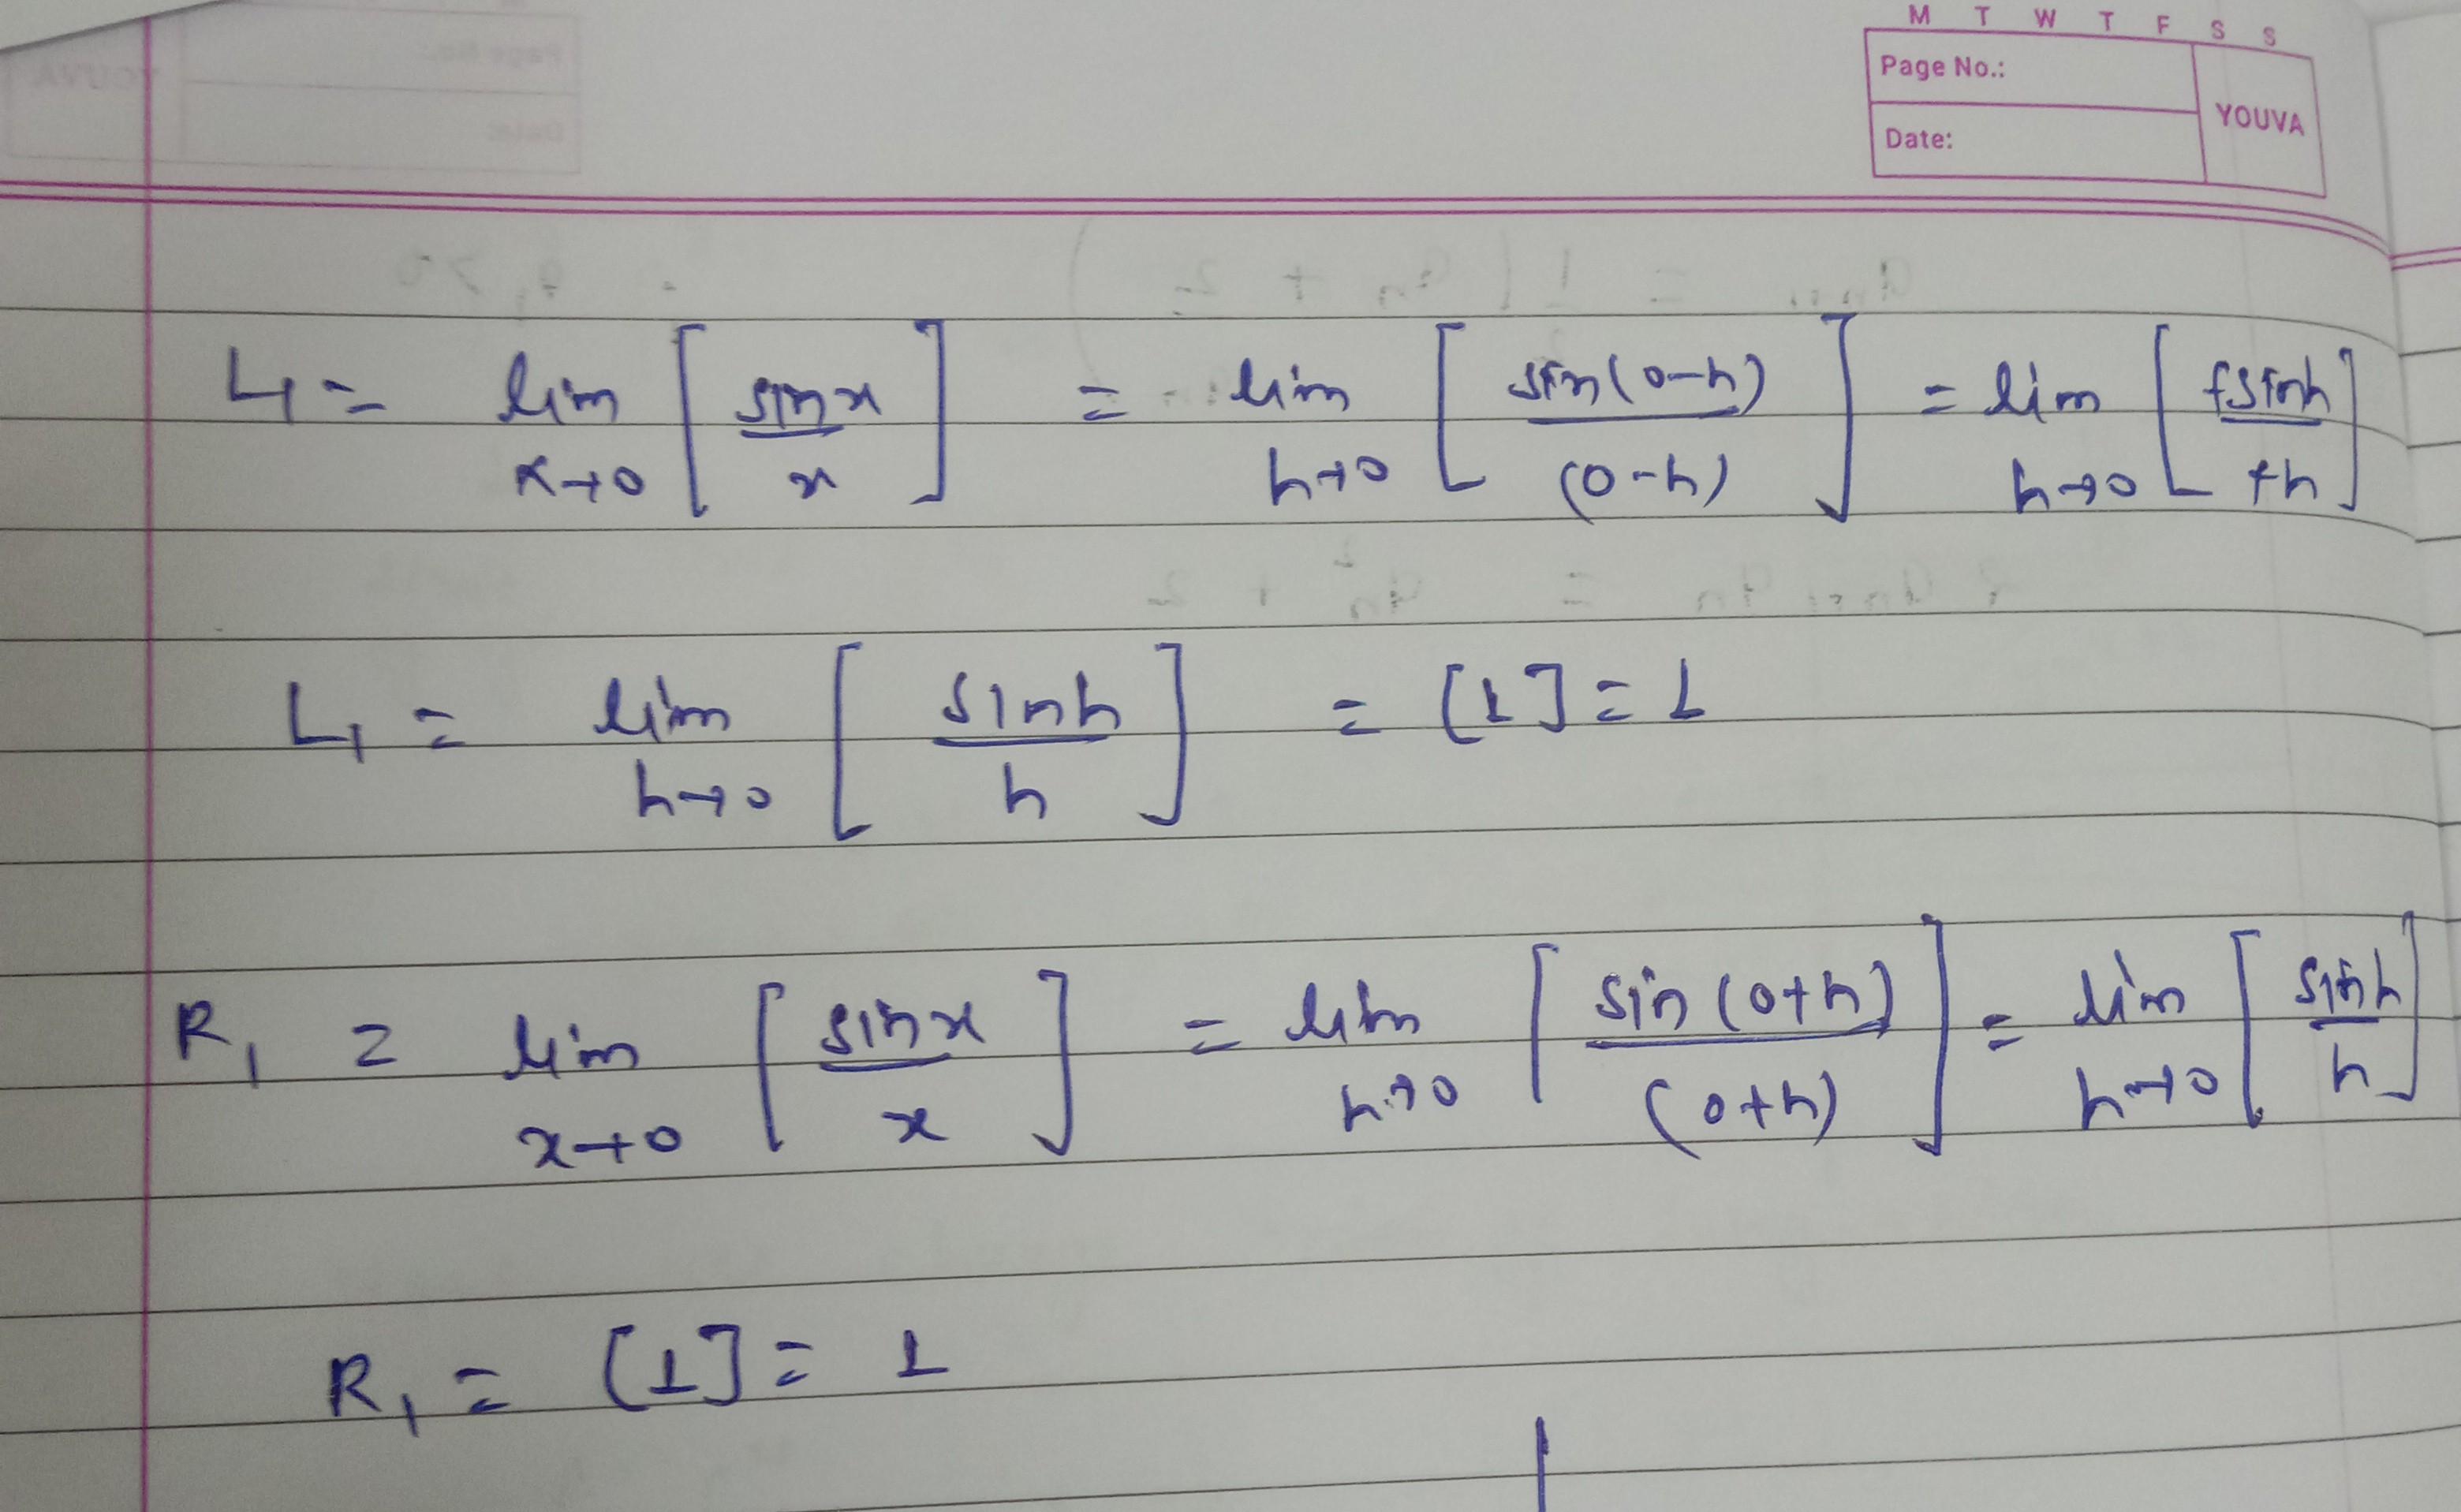 M T W T F S S
Page No.:
YOUVA
Date:
L1 = lim x→0 [sinx / x] = lim h→0 [sin(0-h) / (0-h)] = lim h→0 [+sinh / +h]
L1 = lim h→0 [sinh / h] = [1] = 1
R1 = lim x→0 [sinx / x] = lim h→0 [sin(0+h) / (0+h)] = lim h→0 [sinh / h]
R1 = [1] = 1